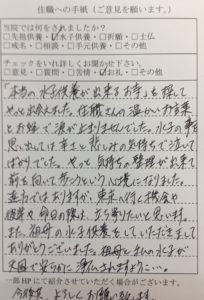 住職への手紙(ご意見を願います。)
当院では何をされましたか?
□先祖供養・☑水子供養・□祈願・□土仏
□戒名・□相談・□手元供養・□その他
チェックをいれ詳しくお聞かせ下さい。
□意見・□質問・□苦情・☑お礼・□その他
「本当の水子供養が出来るお寺」を探して
やっと出会えました。住職さんの温かいお言葉
とお経で涙が止まりませんでした。水子の事を
思い出しては辛さと悲しみの気持ちで泣いて
ばかりでした。やっと気持ちの整理が出来て
前を向いて歩こうという心境になりました。
遠方ではありますが、東京へ行く機会や
後押を今日の様に立ち寄りたいと思います。
また、祖母の水子供養をしていただきまして
ありがとうございました。祖母と私の水子が
天国で安らかに
一部HPにて紹介させていただく場合がございます。
今後共 よろしくお願い致します。